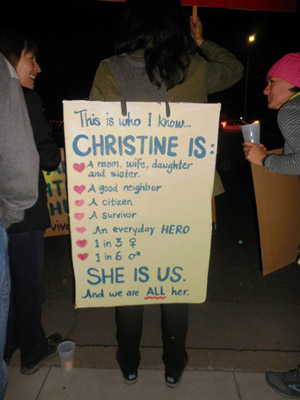 This is who I know...
CHRISTINE IS:
A mom, wife, daughter
and sister.
A good neighbor
A citizen
A survivor
An everyday HERO
1 in 3 ♀
1 in 6 ♂
SHE IS US.
And we are ALL her.